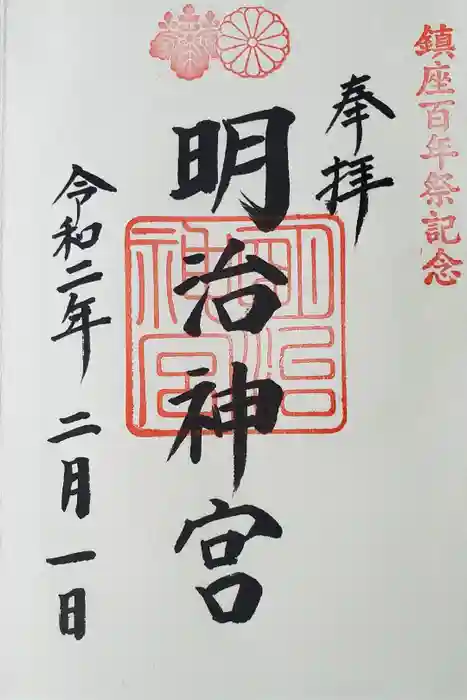 鎮座百年祭記念
奉拝
明治神宮
明治神宮
令和二年 二月一日